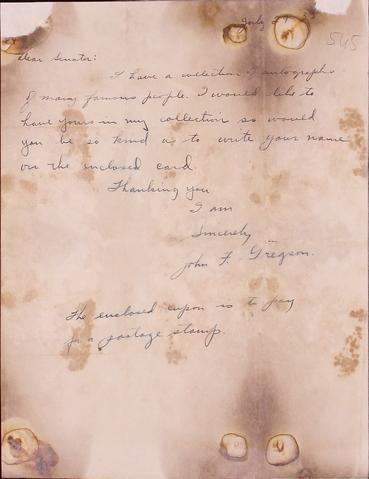 July 29
545
Dear Senator:
I have a collection of autographs
of many famous people. I would like to
have yours in my collection so would
you be so kind as to write your name
on the enclosed card.
Thanking you
I am
Sincerely
John F. Gregson.
The enclosed cupon is to pay
for a postage stamp.